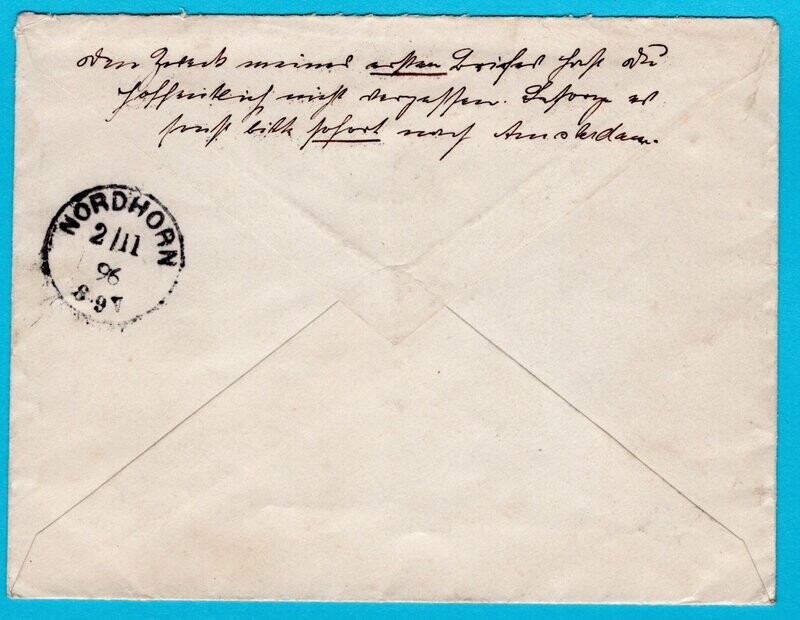 Den Zweck meines ersten Briefes hast Du
hoffentlich nicht vergessen. Besorge es
sonst bitte sofort nach Amsterdam.
NORDHORN
2/11
96
8-9V